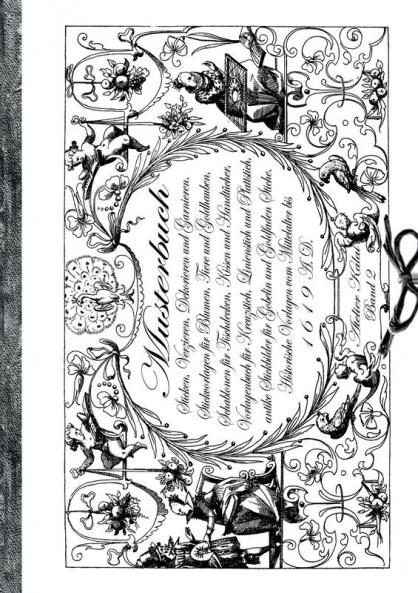 Musterbuch
Sticken, Verzieren, Dekorieren und Garnieren.
Stickvorlagen für Blumen, Tiere und Goldhauben,
Schablonen für Tischdecken, Kissen und Handtücher,
Vorlagenbuch für Kreuzstich, Linienstich und Plattstich,
antike Stickbilder für Gobelin und Goldfaden Sticke.
Historische Vorlagen vom Mittelalter bis
1619 A.D.
Band 2